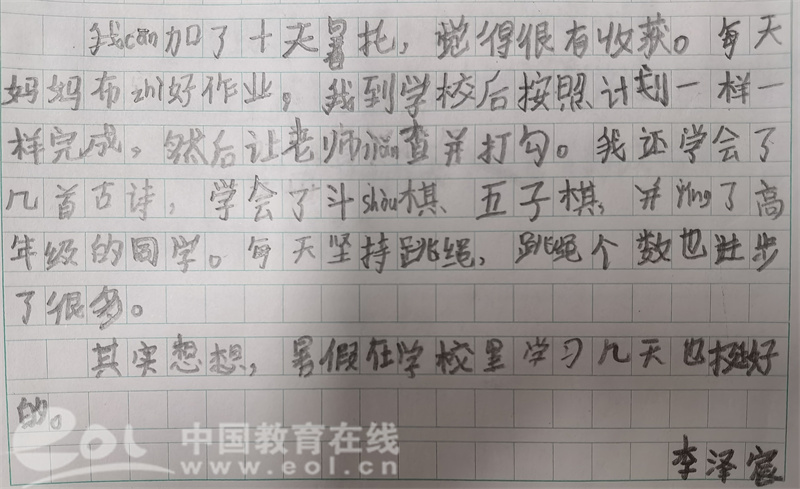 我cān加了十天暑托，觉得很有收获。每天
妈妈布zhì好作业，我到学校后按照计划一样一
样完成，然后让老师jiǎn查并打勾。我还学会了
几首古诗，学会了斗shòu棋、五子棋，并yíng了高
年级的同学。每天坚持跳绳，跳绳个数也进步
了很多。
其实想想，暑假在学校里学习几天也挺好
的。
李泽宸
eol 中国教育在线
www.eol.cn